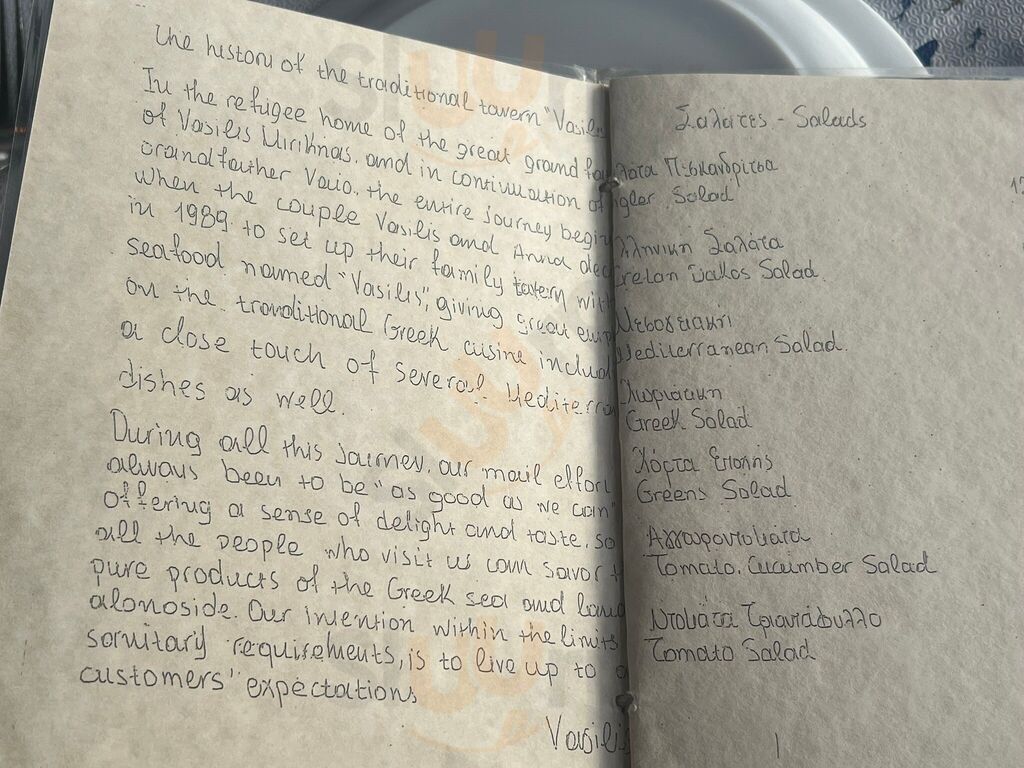 the history of the traditional tavern "Vasilis
In the refugee home of the great grand fa
of Vasilis and in continuation of
grandfather the entire journey begin
when the couple Vasilis and Anna dec
in 1989. to set up their family tavern with
seafood named "Vasilis", giving great emp
on the traditional Greek cuisine includ
a close touch of several Mediterra
dishes as well.
During all this journey, our mail effort
always been to be "as good as we can"
offering a sense of delight and taste, so
all the people who visit us can savor t
pure products of the Greek sea and land
alongside. Our intention within the limits
sanitary requirements, is to live up to a
customers" expectations
Vasilis
Σαλάτες - Salads
λατα Πεσκανδρίτσα
igler Salad
17
λληνικη Σαλάτα
Cretan Dakos Salad
Μεσογειακη
Mediterranean Salad
Χωριατικη
Greek Salad
Χόρτα Εποχής
Greens Salad
Αγγουροντοματα
Tomato. Cucumber Salad
Ντομάτα Τριαντάφυλλο
Tomato Salad
1